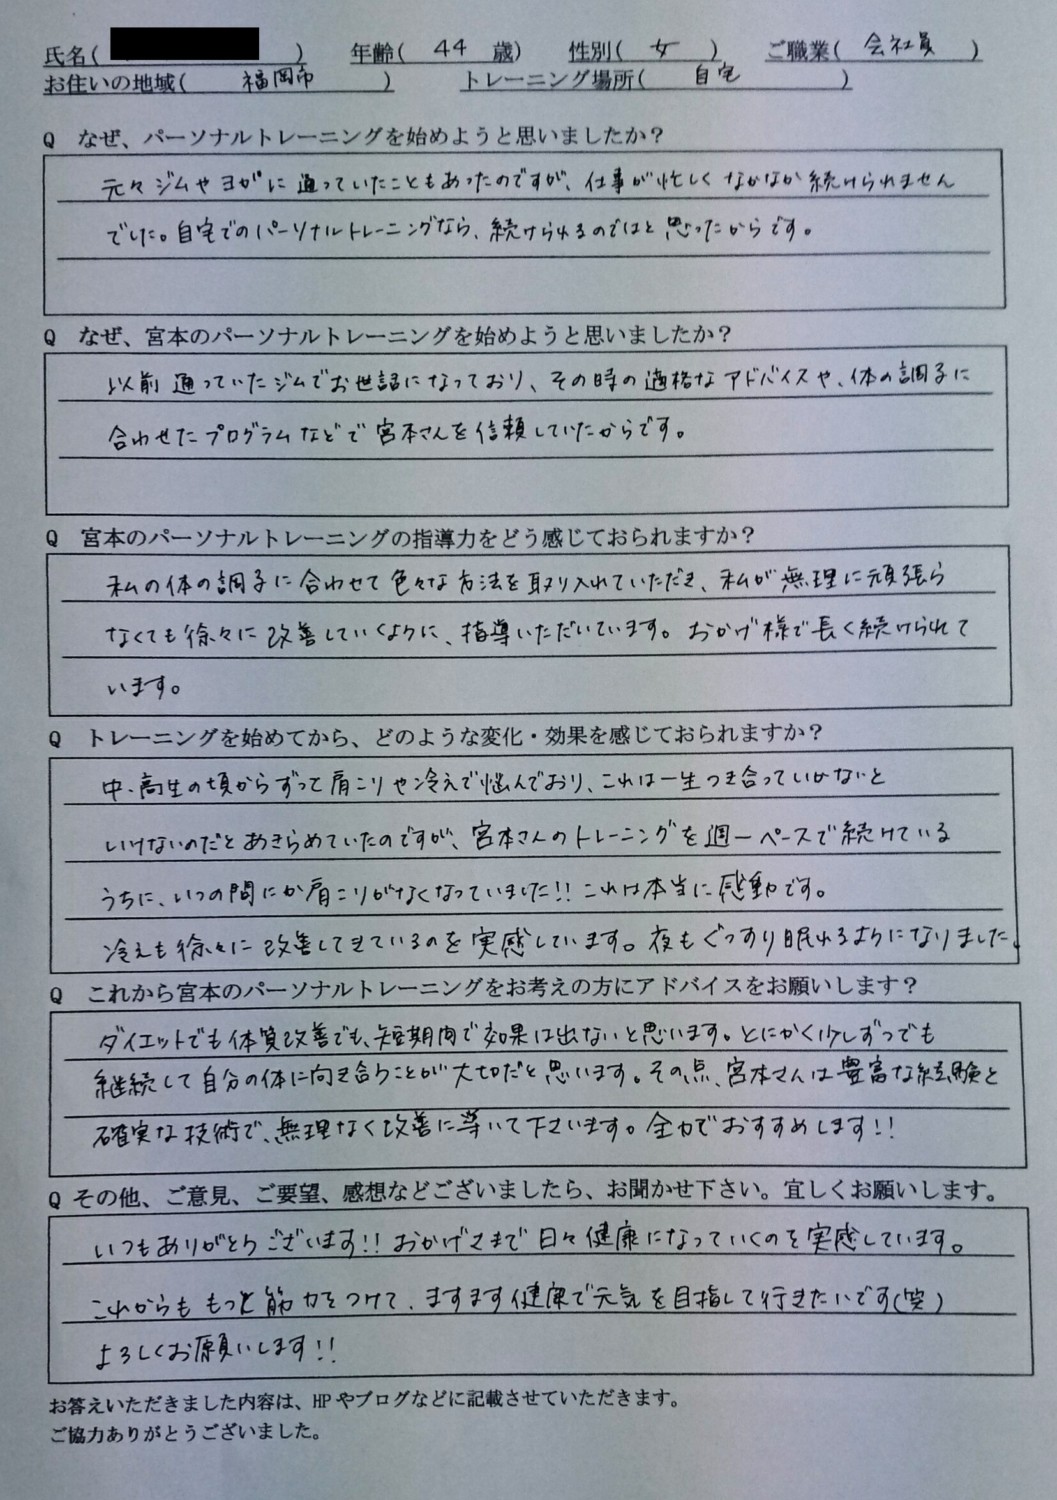 氏名( ) 年齢( 44 歳) 性別( 女 ) ご職業( 会社員 )
お住いの地域( 福岡市 ) トレーニング場所( 自宅 )
Q なぜ、パーソナルトレーニングを始めようと思いましたか？
元々ジムやヨガに通っていたこともあったのですが、仕事が忙しくなかなか続けられません
でした。自宅でのパーソナルトレーニングなら、続けられるのではと思ったからです。
Q なぜ、宮本のパーソナルトレーニングを始めようと思いましたか？
以前通っていたジムでお世話になっており、その時の適格なアドバイスや、体の調子に
合わせたプログラムなどで宮本さんを信頼していたからです。
Q 宮本のパーソナルトレーニングの指導力をどう感じておられますか？
私の体の調子に合わせて色々な方法を取り入れていただき、私が無理に頑張ら
なくても徐々に改善していくように、指導いただいています。おかげ様で長く続けられて
います。
Q トレーニングを始めてから、どのような変化・効果を感じておられますか？
中・高生の頃からずっと肩こりや冷えで悩んでおり、これは一生つき合っていかないと
いけないのだとあきらめていたのですが、宮本さんのトレーニングを週一ペースで続けている
うちに、いつの間にか肩こりがなくなっていました!! これは本当に感動です。
冷えも徐々に改善してきているのを実感しています。夜もぐっすり眠れるようになりました。
Q これから宮本のパーソナルトレーニングをお考えの方にアドバイスをお願いします？
ダイエットでも体質改善でも、短期間で効果は出ないと思います。とにかく少しずつでも
継続して自分の体に向き合うことが大切だと思います。その点、宮本さんは豊富な経験と
確実な技術で、無理なく改善に導いて下さいます。全力でおすすめします!!
Q その他、ご意見、ご要望、感想などございましたら、お聞かせ下さい。宜しくお願いします。
いつもありがとうございます!! おかげさまで日々健康になっていくのを実感しています。
これからももっと筋力をつけて、ますます健康で元気を目指して行きたいです(笑)
よろしくお願いします!!
お答えいただきました内容は、HPやブログなどに記載させていただきます。
ご協力ありがとうございました。